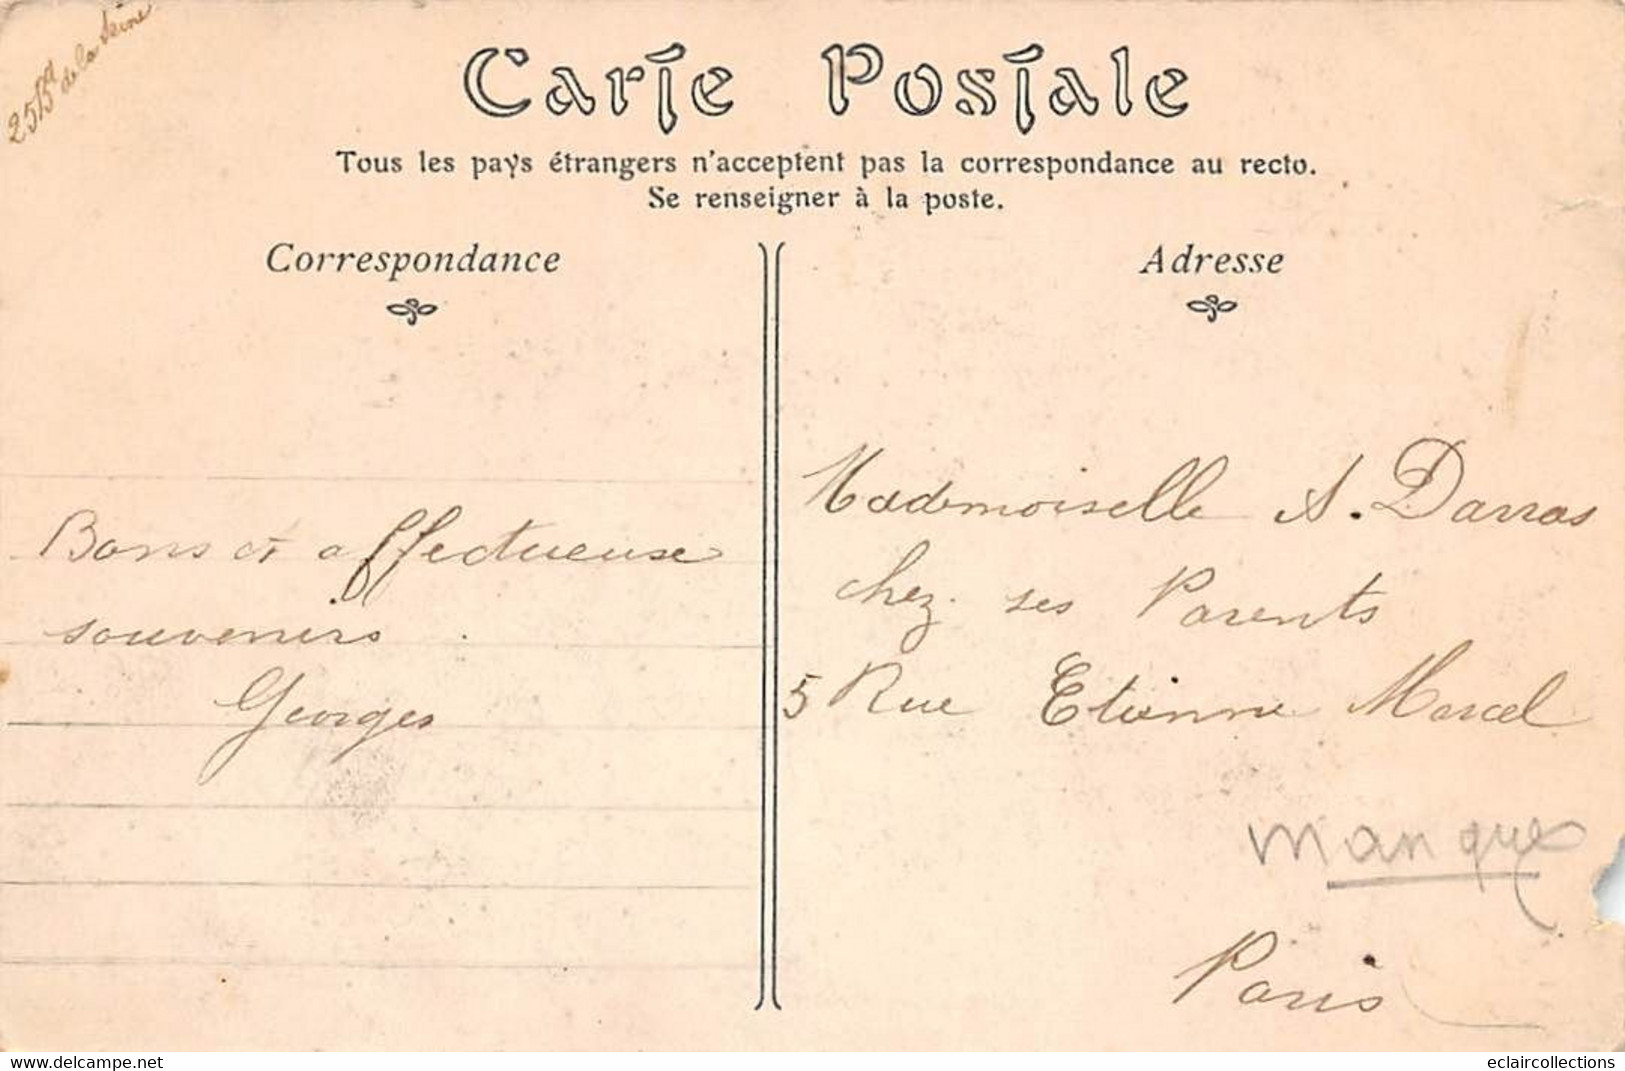 25 Bd de la Seine
Carte Postale
Tous les pays étrangers n'acceptent pas la correspondance au recto.
Se renseigner à la poste.
Correspondance
Adresse
Bons et affectueuse
souvenirs.
Georges
Mademoiselle A. Darras
chez ses Parents
5 Rue Etienne Marcel
manque
Paris
www.delcampe.net
eclaircollections